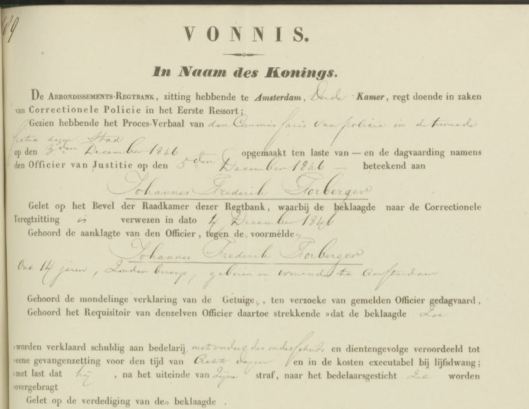 VONNIS.
In Naam des Konings.
De Arrondissements-Regtbank, zitting hebbende te Amsterdam, Derde Kamer, regt doende in zaken
van Correctionele Policie in het Eerste Ressort;
Gezien hebbende het Proces-Verbaal van den Commissaris van policie in de tweede
sectie dezer Stad
op den 3den December 1846 opgemaakt ten laste van — en de dagvaarding namens
den Officier van Justitie op den 5den December 1846 — beteekend aan
Johannes Frederik Forberger
Gelet op het Bevel der Raadkamer dezer Regtbank, waarbij de beklaagde naar de Correctionele
Teregtzitting is verwezen in dato 4 December 1846
Gehoord de aanklagte van den Officier, tegen de voormelde
Johannes Frederik Forberger
Oud 14 jaren, Zonder beroep, geboren en wonende te Amsterdam
Gehoord de mondelinge verklaring van de Getuige, ten verzoeke van gemelden Officier gedagvaard,
Gehoord het Requisitoir van denzelven Officier daartoe strekkende »dat de beklaagde Zal
»worden verklaard schuldig aan bedelarij en dientengevolge veroordeeld tot
»eene gevangenzetting voor den tijd van Acht dagen en in de kosten executabel bij lijfsdwang;
»met last dat hij, na het uiteinde van Zijne straf, naar het bedelaarsgesticht Zal worden
»overgebragt
Gelet op de verdediging van de beklaagde.